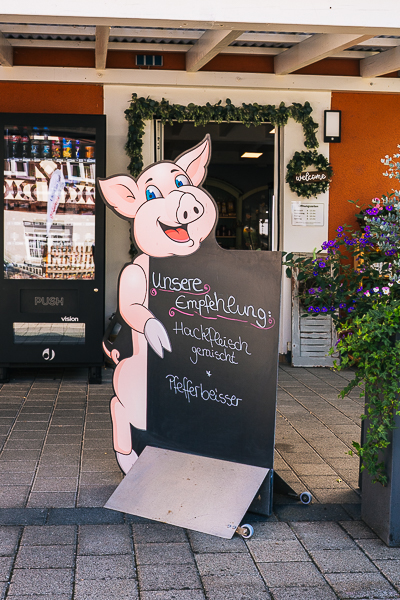 welcome
Unsere
Empfehlung:
Hackfleisch
gemischt
*
Pfefferbeisser
PUSH
vision